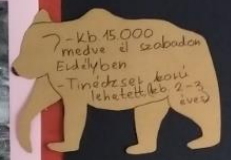 -Kb 15.000
medve él szabadon
Erdélyben
-Tinédzser korú
lehetett (kb. 2-3
éves)